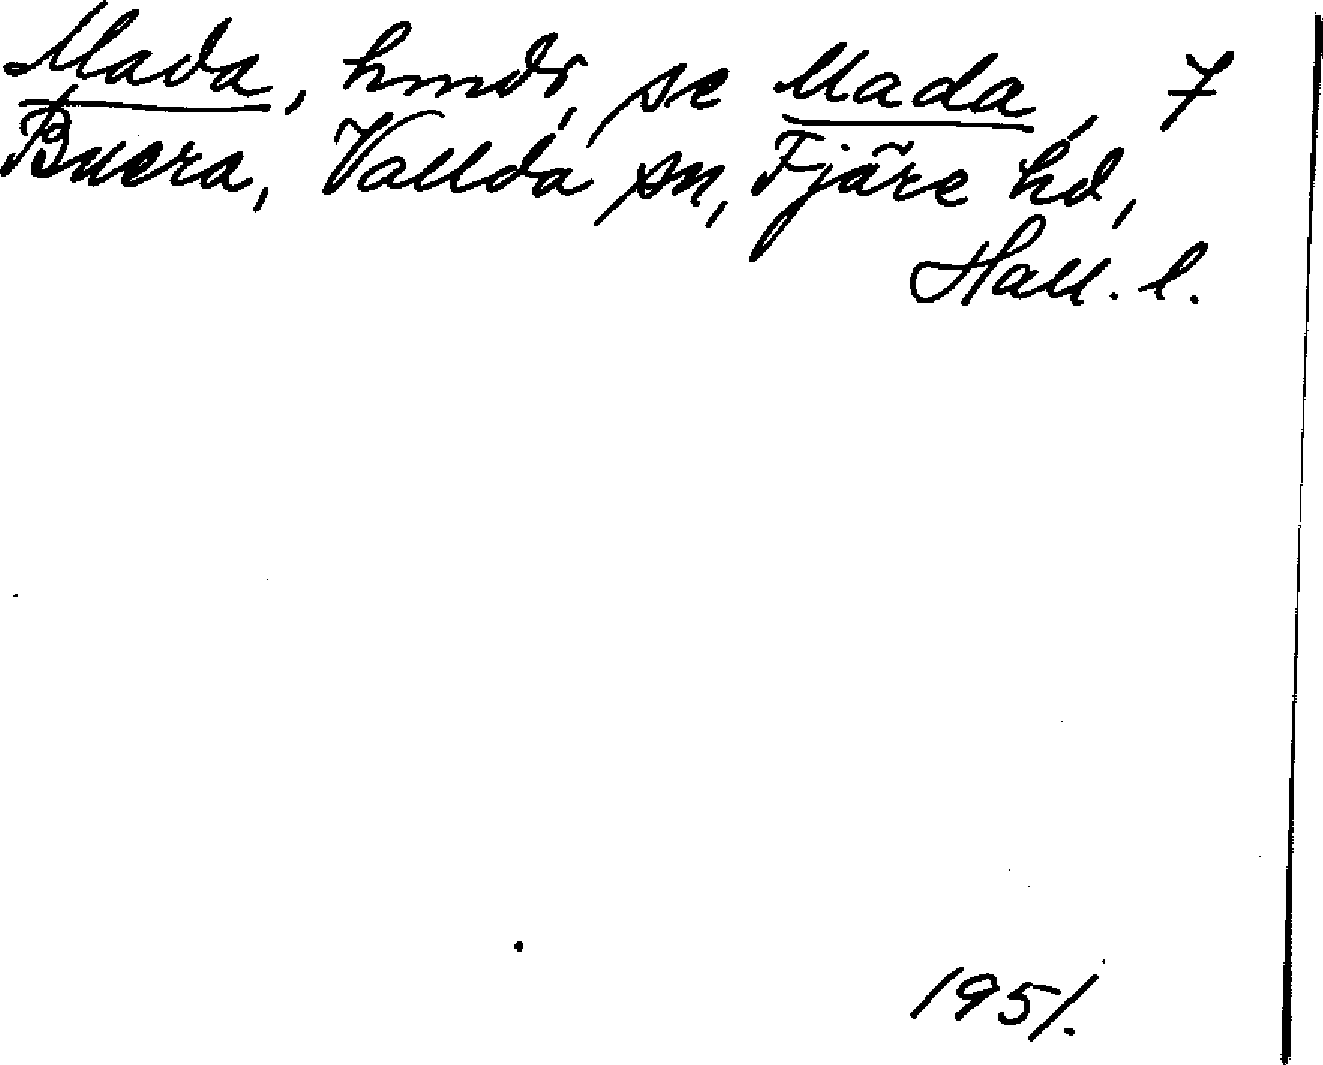 Mada, hmdr, se Mada, 7
Buera, Vallda sn, Fjäre hd,
Hall. l.
1951.